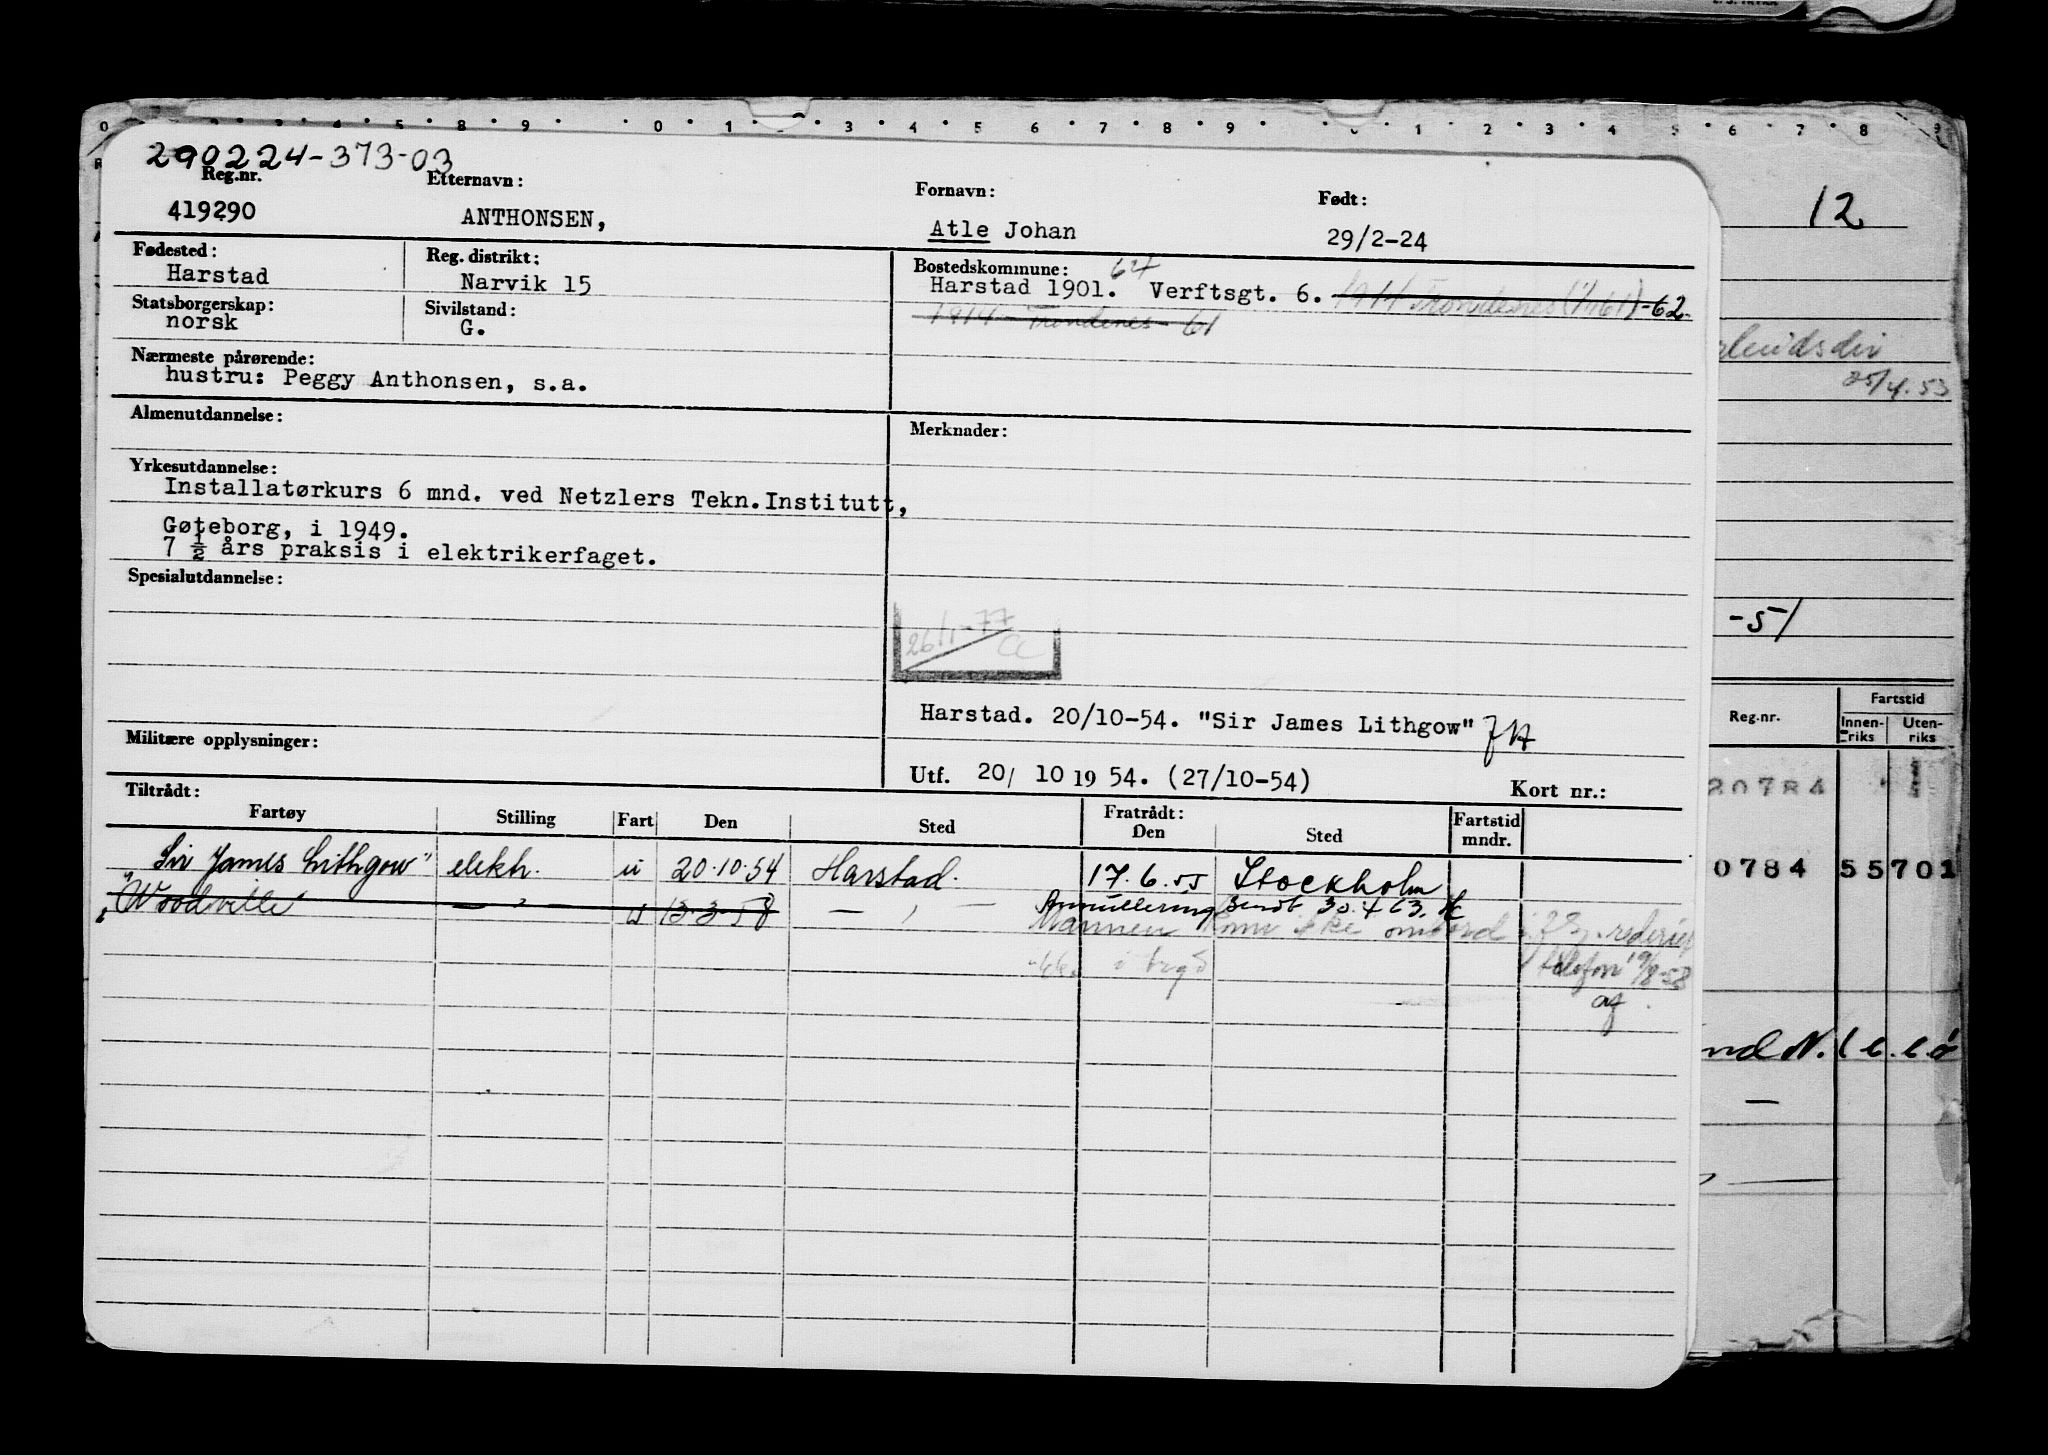 0 2 3 4 5 8 9 0 1 2 3 4 5 6 7 8 9 0 1 2 3 4 5 6 7 8 9
290224-373-03
Reg.nr. Etternavn: Fornavn: Født:
419290 ANTHONSEN, Atle Johan 29/2-24
12
Fødested: Reg. distrikt: Bostedskommune: 64
Harstad Narvik 15 Harstad 1901. Verftsgt. 6. 1914 Trondenes (1/1 61) -62.
Statsborgerskap: Sivilstand: 1914 Trondenes 61
norsk G.
Nærmeste pårørende:
hustru: Peggy Anthonsen, s.a.
25/4.53
Almenutdannelse: Merknader:
Yrkesutdannelse:
Installatørkurs 6 mnd. ved Netzlers Tekn.Institutt,
Gøteborg, i 1949.
7 ½ års praksis i elektrikerfaget.
Spesialutdannelse:
26/1-77
-51
Harstad. 20/10-54. "Sir James Lithgow"
Militære opplysninger:
Utf. 20/ 10 19 54. (27/10-54) Kort nr.:
Reg.nr. Fartstid
Innen-riks Uten-riks
20784
Tiltrådt: Fratrådt:
Fartøy Stilling Fart Den Sted Den Sted Fartstid mndr.
Sir James Lithgow" elektr. u 20.10.54 Harstad. 17.6.55 Stockholm
0784 55701
"Woodville" — " — u 13.3.58 — " — Annullering sendt 30.4 63.
Mannen kom ikke ombord
-66. telefon 9/8-58